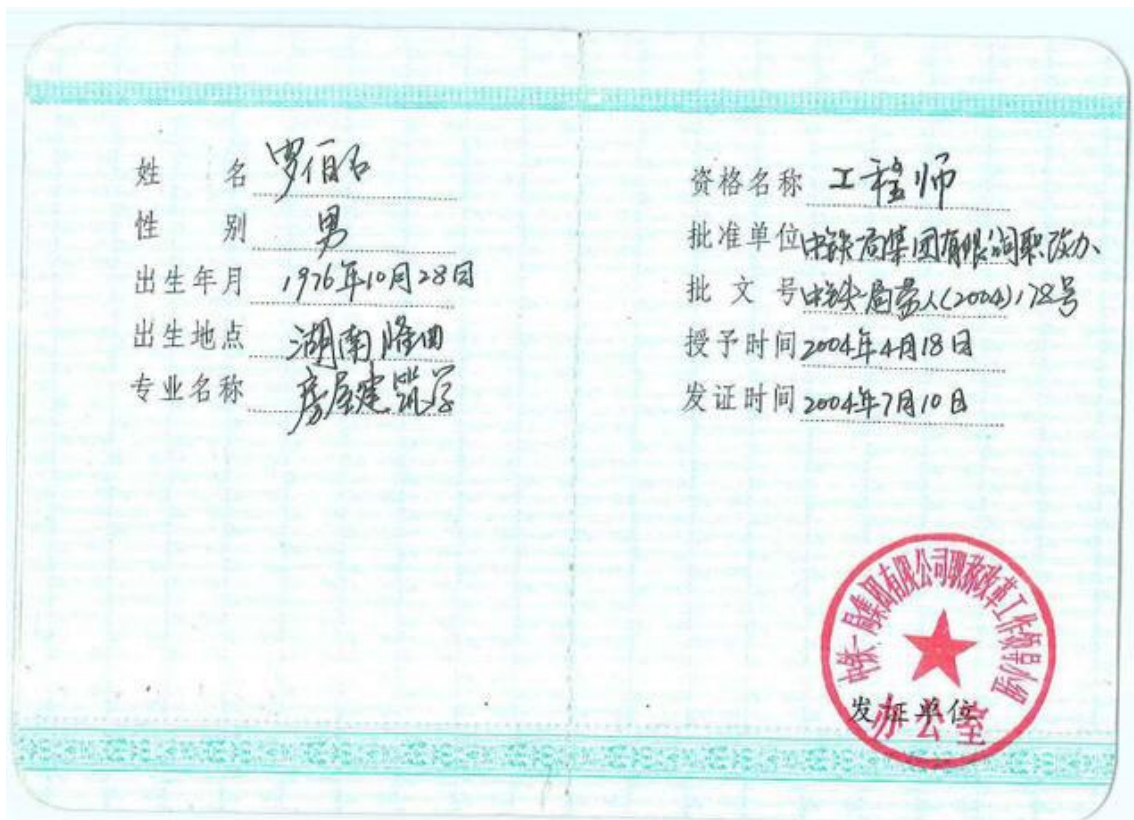 姓 名 罗伯石
性 别 男
出生年月 1976年10月28日
出生地点 湖南隆回
专业名称 房屋建筑学
资格名称 工程师
批准单位 中铁一局集团有限公司职改办
批文号 中铁一局劳人(2004)178号
授予时间 2004年4月18日
发证时间 2004年7月10日
中铁一局集团有限公司职称改革工作领导小组
办公室
发证单位